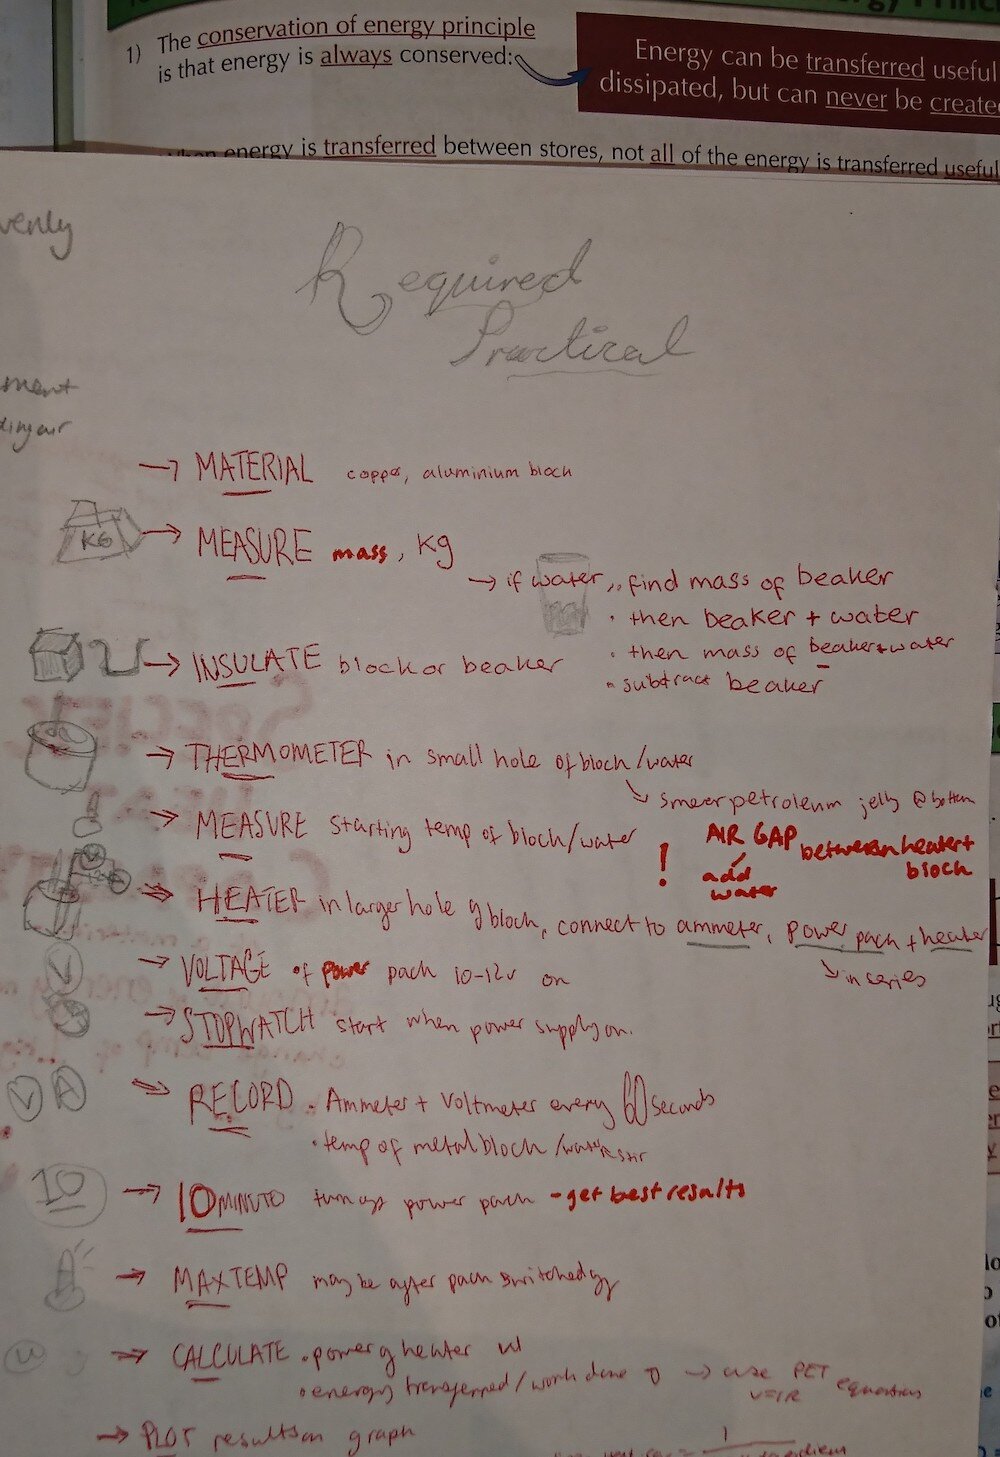 1) The conservation of energy principle
is that energy is always conserved:
Energy can be transferred useful
dissipated, but can never be create
energy is transferred between stores, not all of the energy is transferred useful
venly
Required
Practical
ment
→ MATERIAL copper, aluminium block
KG
→ MEASURE mass, kg
→ if water, find mass of beaker
· then beaker + water
· then mass of beaker + water
· subtract beaker
→ INSULATE block or beaker
→ THERMOMETER in small hole of block/water
↘ smear petroleum jelly @ bottom
→ MEASURE starting temp of block/water
! AIR GAP between heater + block
add water
→ HEATER in larger hole of block, connect to ammeter, power pack + heater
↘ in series
V
→ VOLTAGE of power pack 10-12v on
→ STOPWATCH start when power supply on.
V A
→ RECORD · Ammeter + Voltmeter every 60 seconds
· temp of metal block /water stir
10
→ 10 MINUTO turn off power pack - get best results
→ MAX TEMP may be after pack switched off
W
→ CALCULATE · power of heater W
· energy transferred / work done J → use PET equations
V=IR
→ PLOT results on graph
1